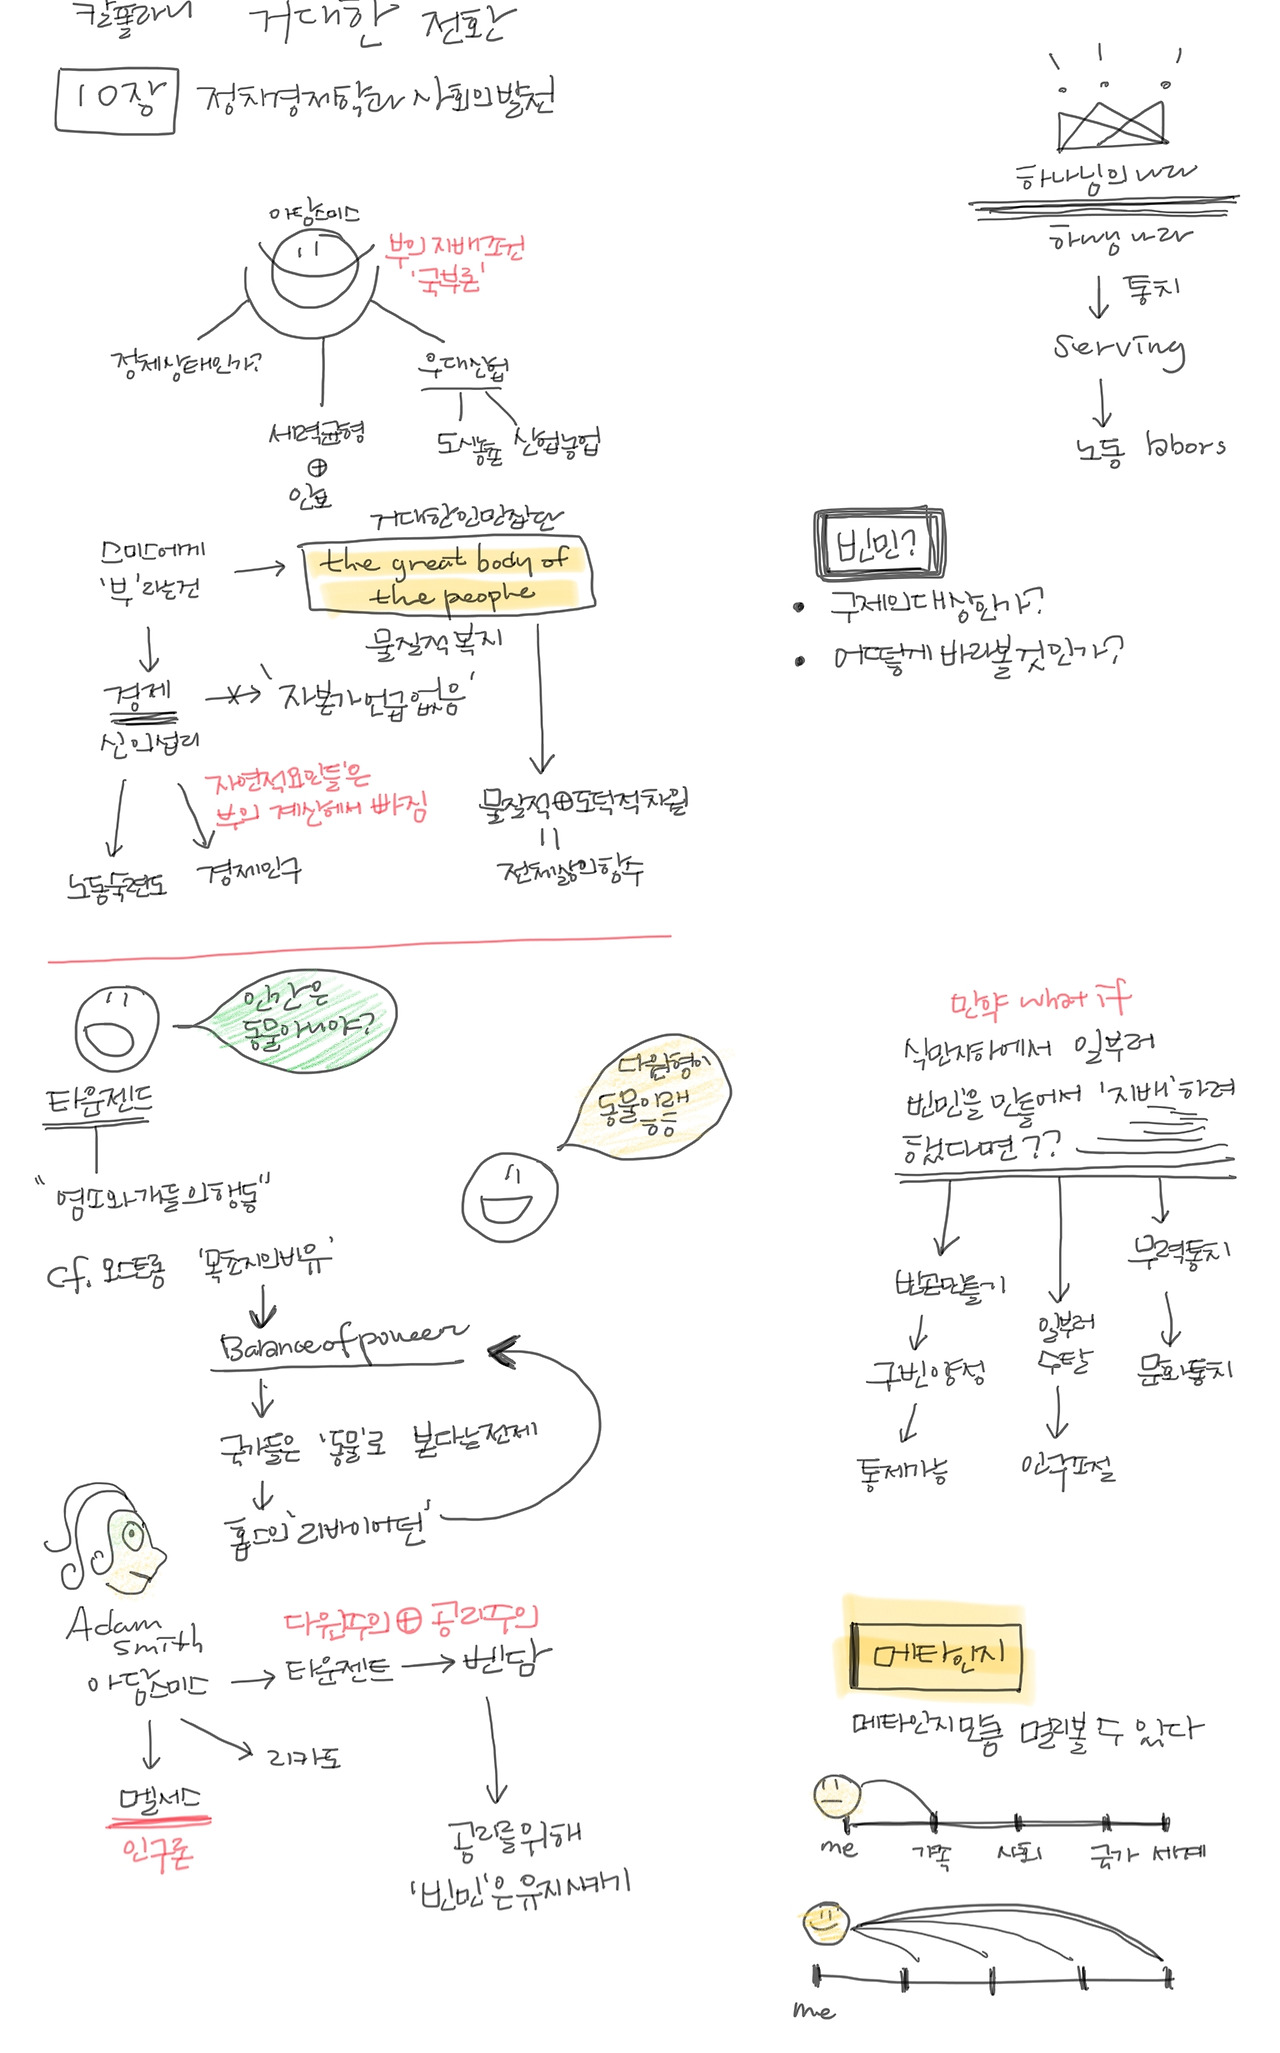 칼폴라니 거대한 전환
10장 정치경제학과 사회의 발전
아담스미스
부의 지배조건
'국부론'
정체상태인가?
우대산업
세력균형
⊕
안보
도시농촌 산업농업
거대한 인민집단
스미스에게
'부'라는건
the great body of
the people
물질적 복지
경제
'자본가 언급없음'
신의 섭리
'자연적요인들'은
부의 계산에서 빠짐
물질적⊕도덕적차원
노동숙련도
경제인구
전체삶의 함수
인간은
동물아니야?
타운젠드
다윈형이
동물이래
ㅎㅎ
"염소와 개들의 행동"
cf. 오스트롬 '목초지의 비유'
Balance of power
국가들은 '동물'로 본다는 전제
홉스의 '리바이어던'
Adam
Smith
아담스미스
다윈주의 ⊕ 공리주의
타운젠트
벤담
리카도
멜서스
인구론
공리를 위해
'빈민'은 유지시키기
하나님의 나라
하나님 나라
통치
Serving
노동 labors
빈민?
• 구제의 대상인가?
• 어떻게 바라볼것인가?
만약 what if
식민지하에서 일부러
빈민을 만들어서 '지배'하려
했다면??
빈곤만들기
구빈양정
통제가능
일부러
수탈
인구조절
무력통치
문화통치
메타인지
메타인지만큼 멀리볼 수 있다
me 가족 사회 국가 세계
me